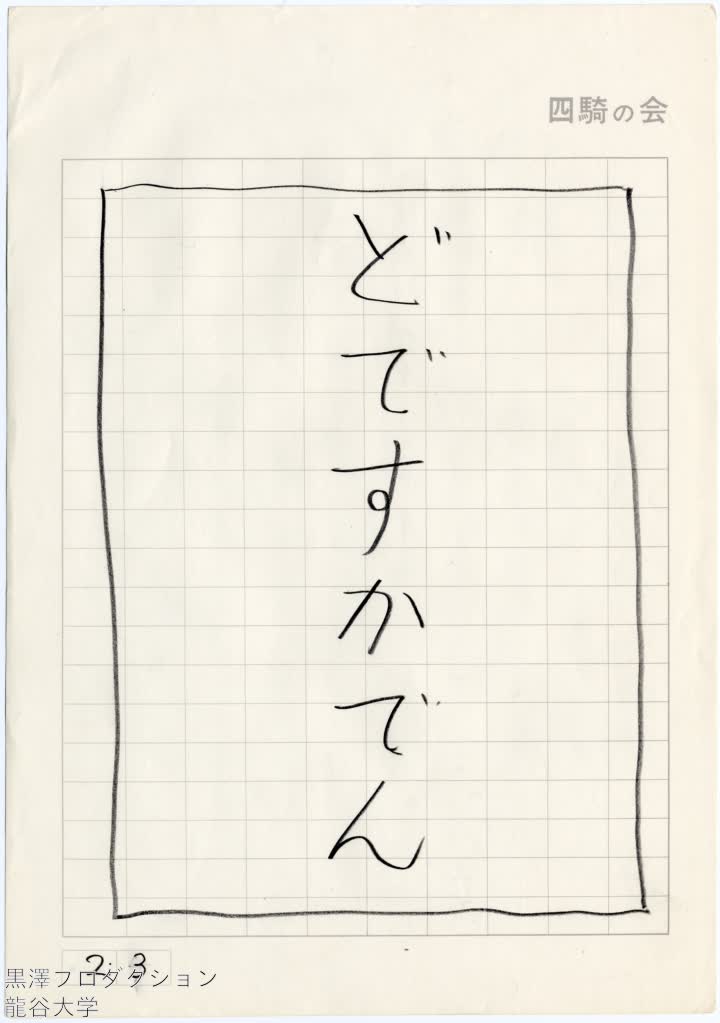 四騎の会
どですかでん
23
黒澤プロダクション
龍谷大学